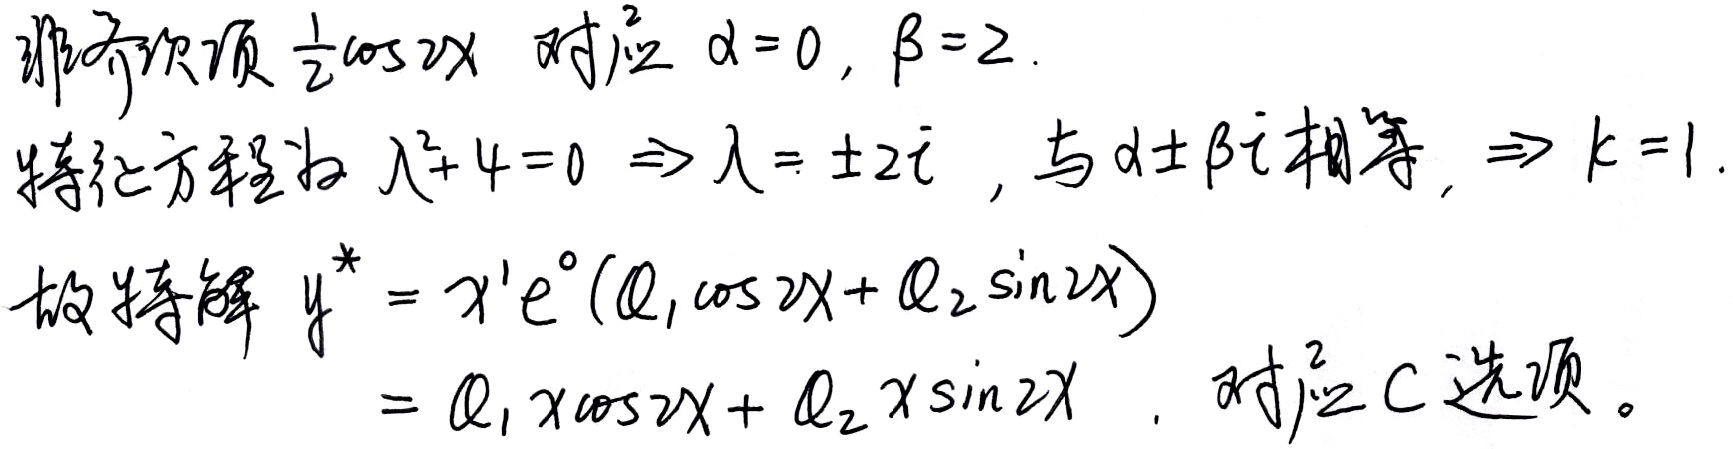 非齐次项 1/2 cos2x 对应 α=0, β=2.
特征方程为 λ²+4=0 ⇒ λ=±2i , 与 α±βi 相等, ⇒ k=1.
故特解 y* = x¹e⁰(Q₁cos2x+Q₂sin2x)
= Q₁xcos2x+Q₂xsin2x . 对应C选项。